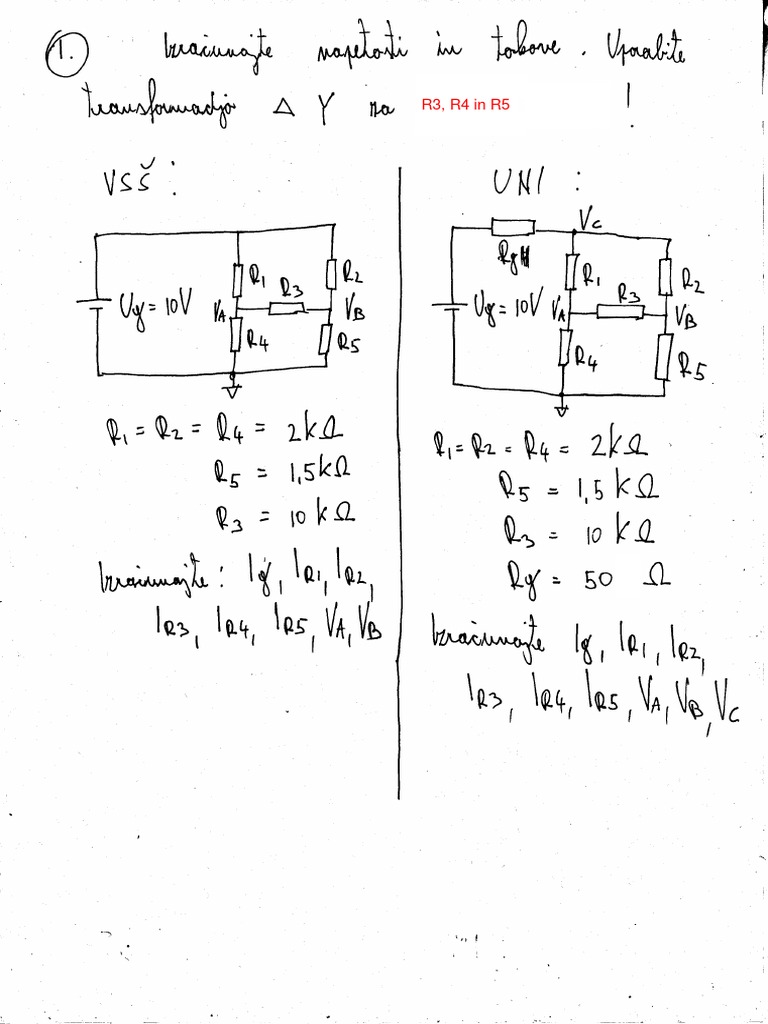 1. Izračunajte napetosti in tokove. Uporabite
transformacijo Δ Y za R3, R4 in R5 !
VSŠ :
R1
R2
R3
Ug = 10V
VA
VB
R4
R5
R1 = R2 = R4 = 2kΩ
R5 = 1,5kΩ
R3 = 10 kΩ
Izračunajte : Ig, IR1, IR2,
IR3, IR4, IR5, VA, VB
UNI :
VC
Rg
R1
R2
R3
Ug = 10V
VA
VB
R4
R5
R1 = R2 = R4 = 2kΩ
R5 = 1,5 kΩ
R3 = 10 kΩ
Rg = 50 Ω
Izračunajte Ig, IR1, IR2,
IR3, IR4, IR5, VA, VB, VC